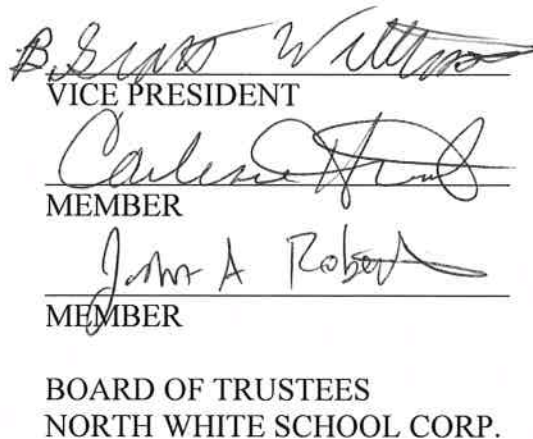 B. Scott
VICE PRESIDENT
Carlene
MEMBER
John A Robert
MEMBER
BOARD OF TRUSTEES
NORTH WHITE SCHOOL CORP.